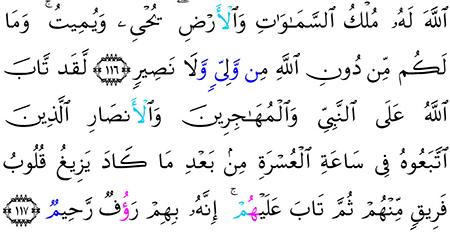 ٱللَّهَ لَهُۥ مُلۡكُ ٱلسَّمَٰوَٰتِ وَٱلۡأَرۡضِۖ يُحۡيِۦ وَيُمِيتُۚ وَمَا
لَكُم مِّن دُونِ ٱللَّهِ مِن وَلِيّٖ وَلَا نَصِيرٖ ١١٦ لَّقَد تَّابَ
ٱللَّهُ عَلَى ٱلنَّبِيِّ وَٱلۡمُهَٰجِرِينَ وَٱلۡأَنصَارِ ٱلَّذِينَ
ٱتَّبَعُوهُ فِي سَاعَةِ ٱلۡعُسۡرَةِ مِنۢ بَعۡدِ مَا كَادَ يَزِيغُ قُلُوبُ
فَرِيقٖ مِّنۡهُمۡ ثُمَّ تَابَ عَلَيۡهِمۡۚ إِنَّهُۥ بِهِمۡ رَءُوفٞ رَّحِيمٞ ١١٧